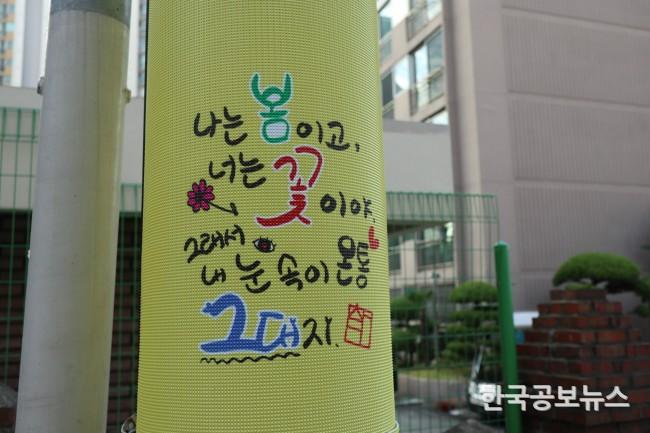 나는 봄이고,
너는 꽃이야.
그래서
내 눈 속이 온통
그대지.
한국공보뉴스